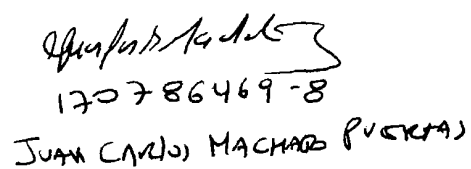 170786469-8
JUAN CARLOS MACHADO PUERTAS